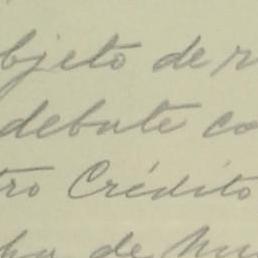 objeto de
debate co
tro Crédito
de